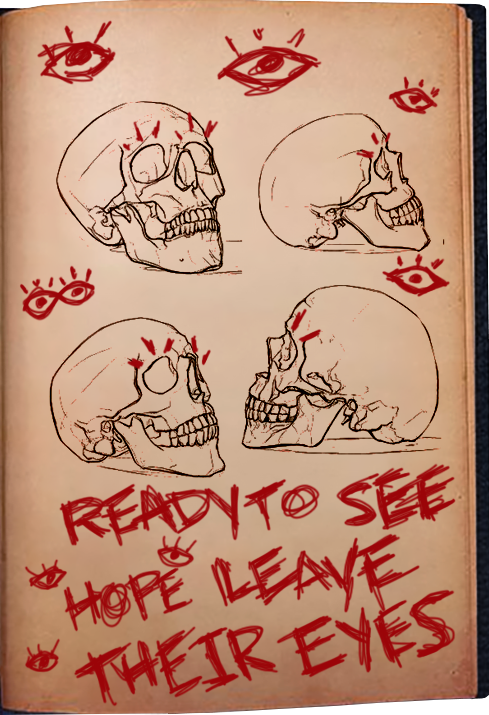 READY TO SEE
HOPE LEAVE
THEIR EYES